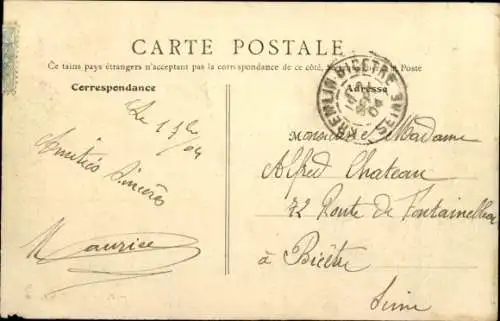 CARTE POSTALE
Ce tains pays étrangers n'acceptant pas la correspondance de ce côté, Poste
Correspondance
Adresse
KREMLIN-BICÊTRE SEINE
04
Le 1 04
Amitiés Sincères
Maurice
Monsieur Madame
Alfred Chateau
72 Route de Fontainebleau
à Bicêtre
Seine